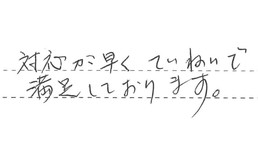 対応が早くていねいで
満足しております。